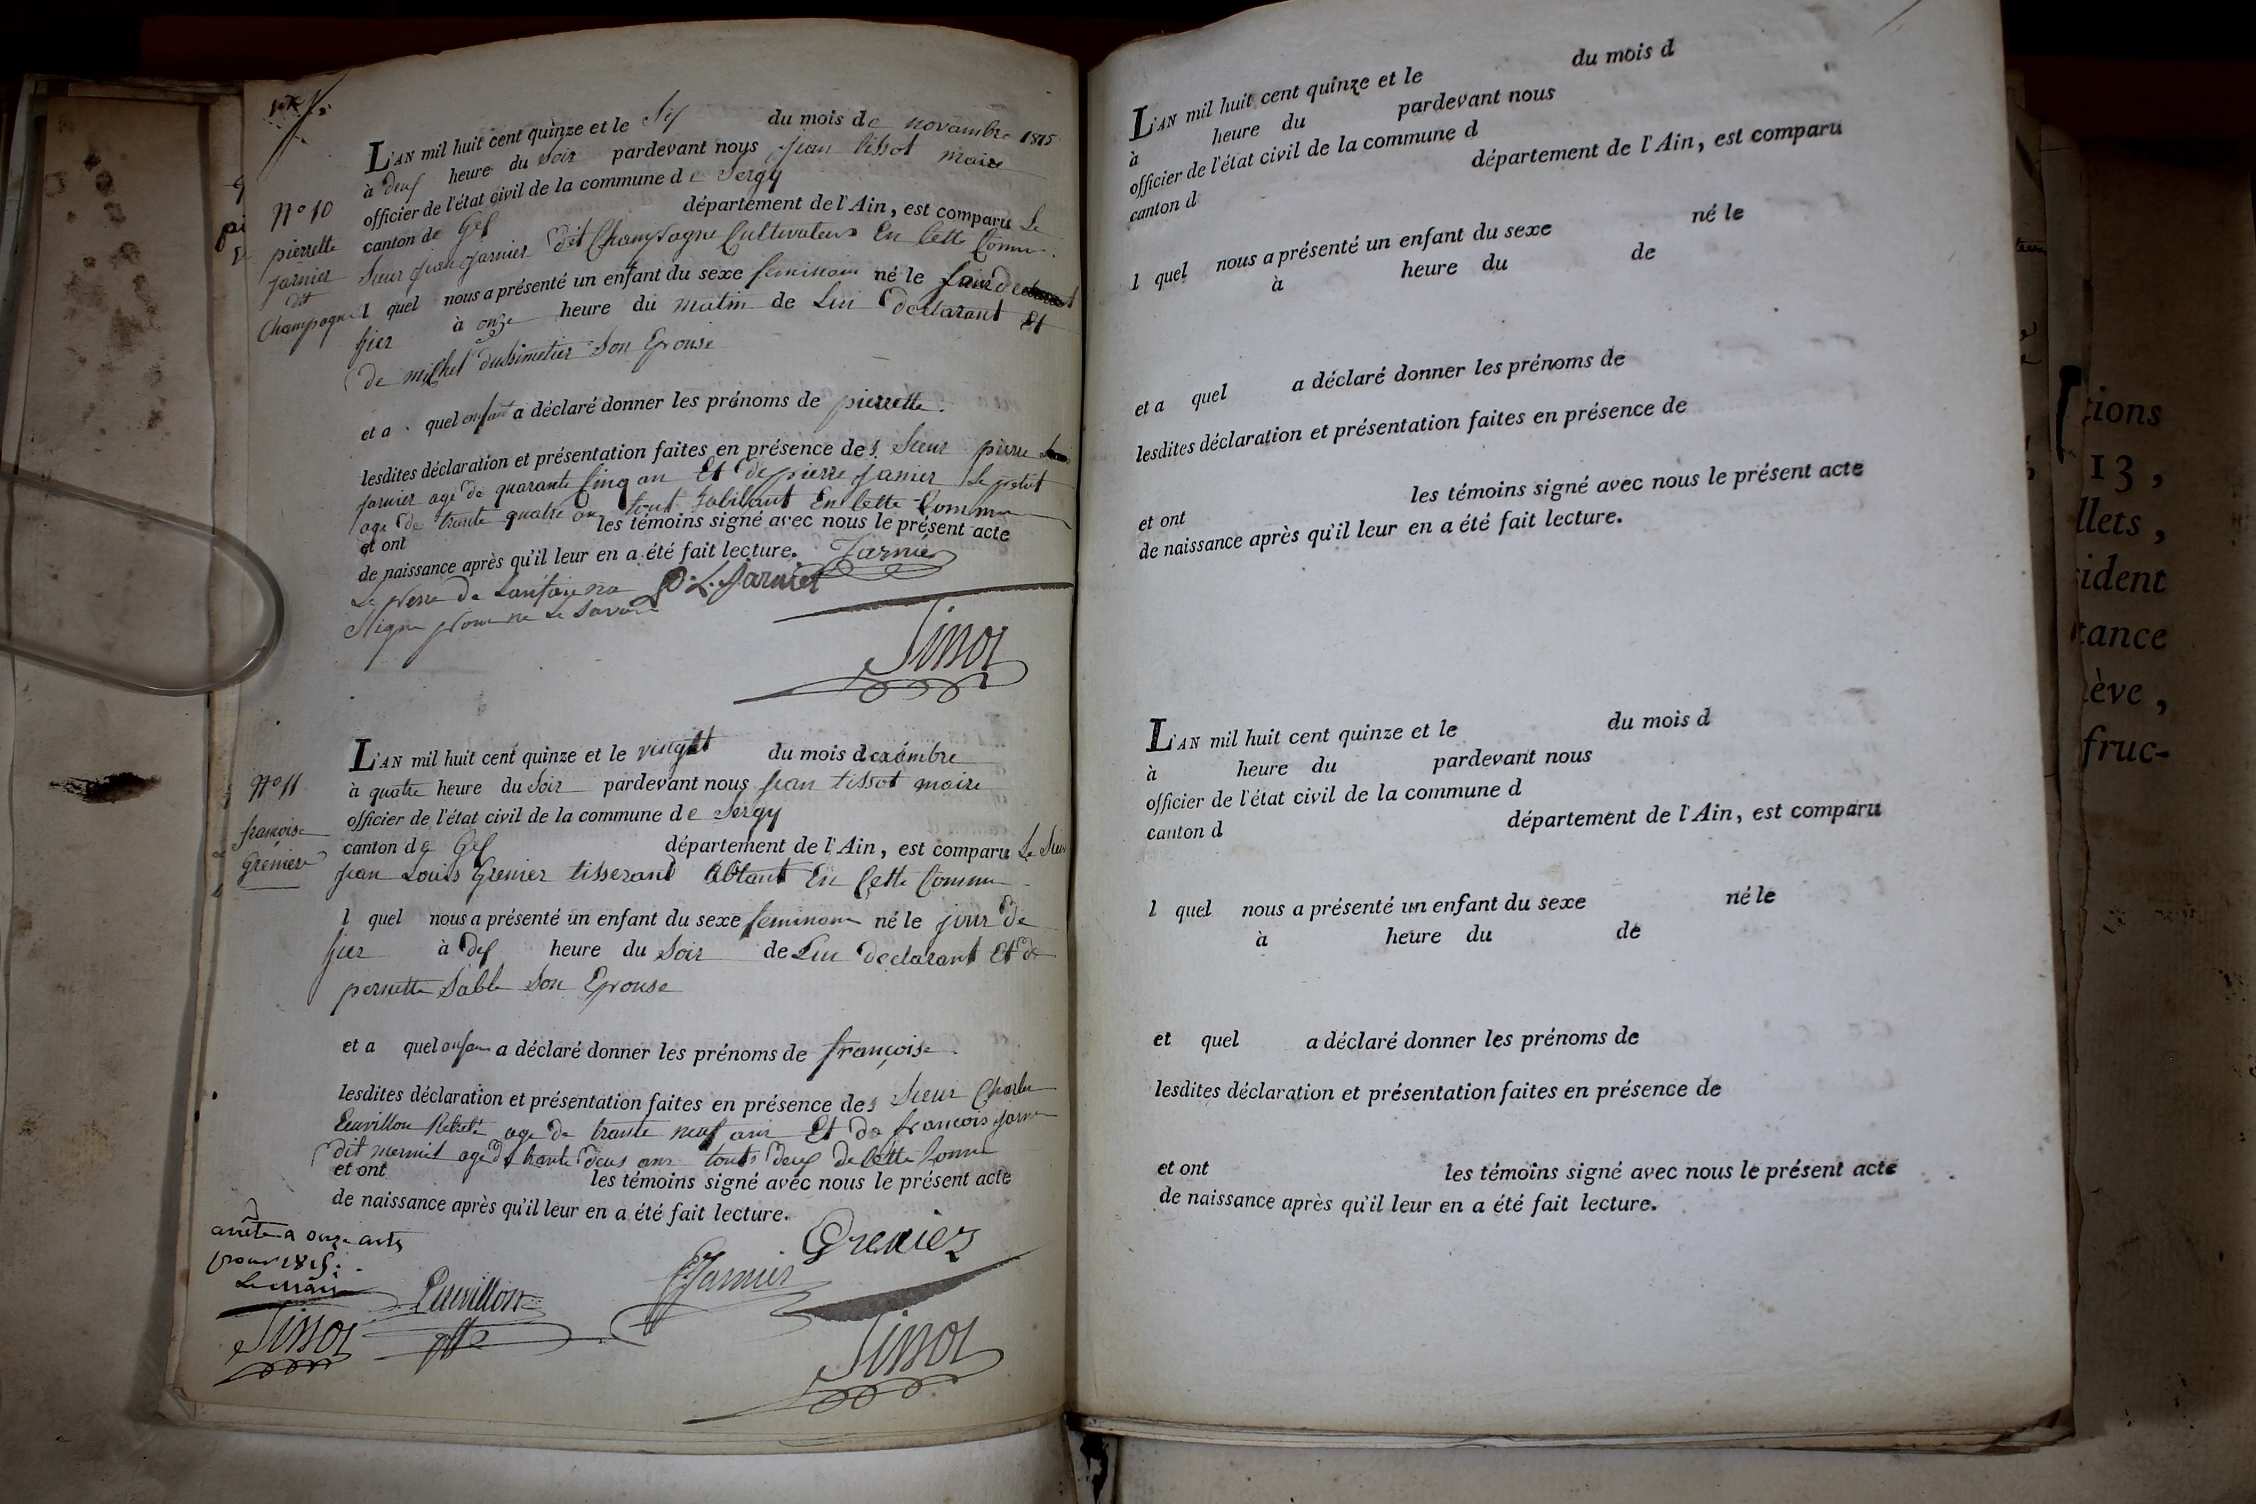 L'AN mil huit cent quinze et le Sis du mois de novambre 1815
à deuf heure du soir pardevant nous jean tissot maire
officier de l'état civil de la commune de Sergy
canton de Gex département de l'Ain, est comparu Le
Sieur jean jarnier dit Champagne Cultivateur En Cette Comu
l quel nous a présenté un enfant du sexe feminoin né le jour de
hier à onze heure du matin de Lui declarant Et
de michel dubimetier Son Epouse
et a quel enfant a déclaré donner les prénoms de pierrette.
lesdites déclaration et présentation faites en présence des Sieur pierre
jarnier age de quarante Cinq an Et de pierre jarnier Le petit
age de trante quatre an tout habitant En Cette Commu
et ont les témoins signé avec nous le présent acte
de naissance après qu'il leur en a été fait lecture. Jarnier
Le pere de Lanfan na P. L. Jarnier
Signe pour ne Le Savoir
Tissot
N° 10
pierrette
jarnier
dit
Champagne
L'AN mil huit cent quinze et le vinght du mois dexambre
à quatre heure du Soir pardevant nous jean tissot maire
officier de l'état civil de la commune de Sergy
canton de Gex département de l'Ain, est comparu Le Sieur
jean Louis Grenier tisserand Abtant En Cette Commu
l quel nous a présenté un enfant du sexe feminoin né le jour de
hier à dix heure du Soir de Lui declarant Et de
pernette Sable Son Epouse
et a quel anfan a déclaré donner les prénoms de françoise
lesdites déclaration et présentation faites en présence des Sieur Charles
Levrillon Retrete age de trante neuf ans Et de francois jarnier
dit mermet age de trante deus ans touts deux de Cette Commu
et ont les témoins signé avec nous le présent acte
de naissance après qu'il leur en a été fait lecture.
Grenier
N° 11
françoise
Grenier
arrêté a onze acts
pour 1815.
Le maire
Tissot
Levrillon
F. Jarnier
Tissot
L'AN mil huit cent quinze et le du mois d
à heure du pardevant nous
officier de l'état civil de la commune d
canton d département de l'Ain, est comparu
l quel nous a présenté un enfant du sexe né le
à heure du de
et a quel a déclaré donner les prénoms de
lesdites déclaration et présentation faites en présence de
et ont les témoins signé avec nous le présent acte
de naissance après qu'il leur en a été fait lecture.
L'AN mil huit cent quinze et le du mois d
à heure du pardevant nous
officier de l'état civil de la commune d
canton d département de l'Ain, est comparu
l quel nous a présenté un enfant du sexe né le
à heure du de
et quel a déclaré donner les prénoms de
lesdites déclaration et présentation faites en présence de
et ont les témoins signé avec nous le présent acte
de naissance après qu'il leur en a été fait lecture.
tions
13,
llets,
ident
tance
ève,
fruc-